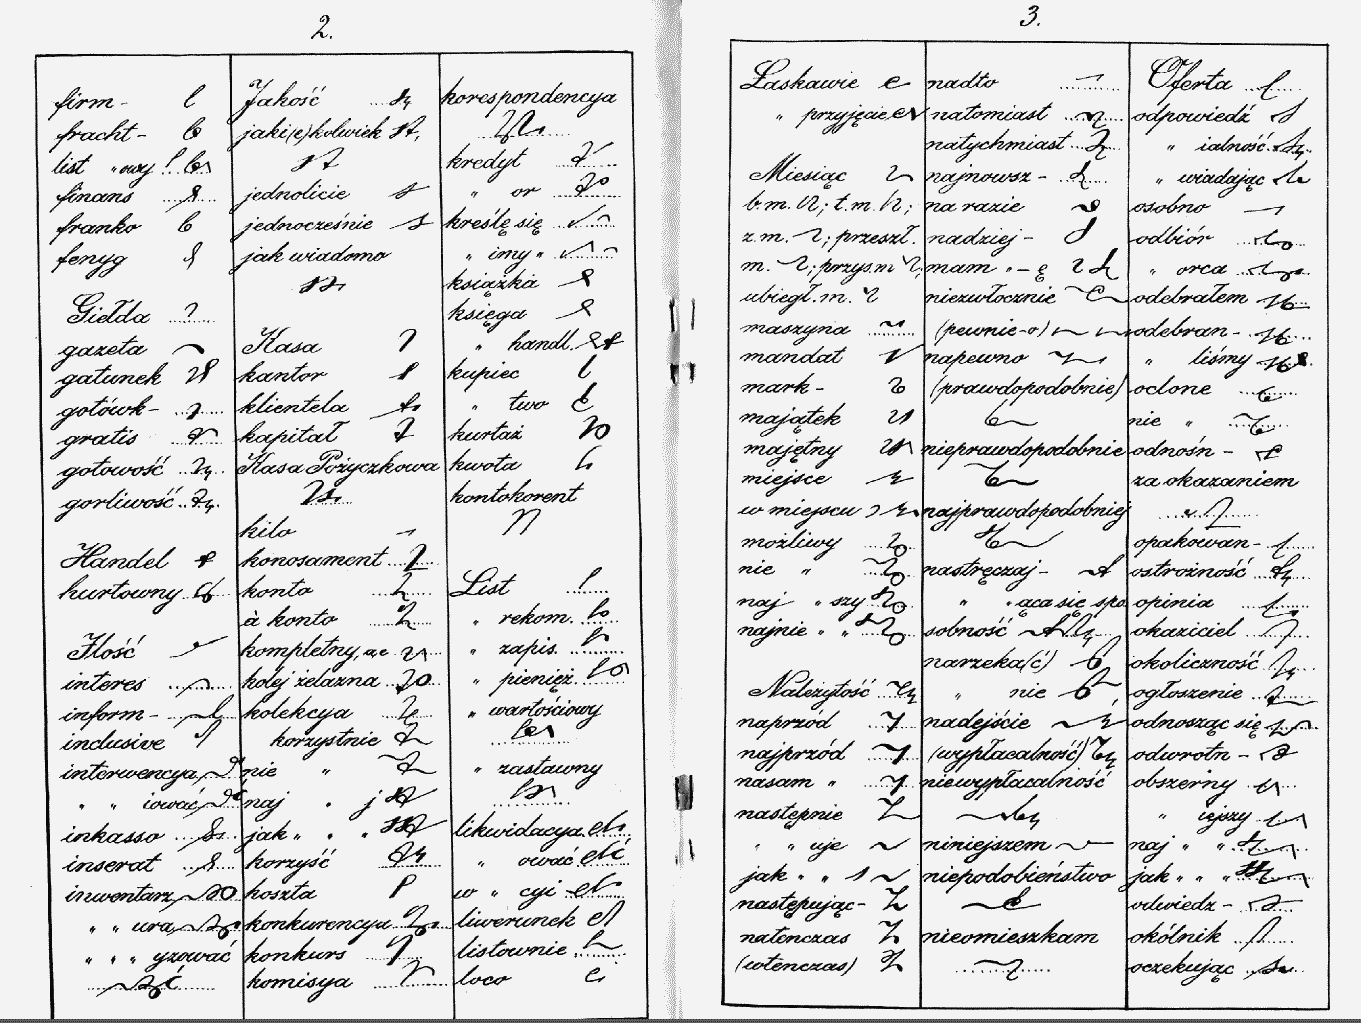 2.
firm-
fracht-
list „owy
finans
franko
fenyg
Giełda
gazeta
gatunek
gotówk-
gratis
gotowość
gorliwość
Handel
hurtowny
Ilość
interes
inform-
inclusive
interwencya
„ „ iować
inkasso
inserat
inwentarz
„ „ ura
„ „ „ yzować
Jakość
jaki(e)kolwiek
jednolicie
jednocześnie
jak wiadomo
Kasa
kantor
klientela
kapitał
Kasa Pożyczkowa
kilo
konosament
konto
à konto
kompletny, ae
kolej żelazna
kolekcya
korzystnie
nie „
naj „ j
jak „ „ „
korzyść
koszta
konkurencya
konkurs
komisya
korespondencya
kredyt
„ or
kreślę się
„ imy „
książka
księga
„ handl.
kupiec
„ two
kurtaż
kwota
kontokorent
List
„ rekom.
„ zapis.
„ pienięż.
„ wartościowy
„ zastawny
likwidacya
„ ować
w „ cyi
liwerunek
listownie
loco
3.
Łaskawie
„ przyjęcie
Miesiąc
b.m. ; t.m. ;
z.m. ; przeszł.
m. ; przys.m ;
ubiegł.m.
maszyna
mandat
mark-
majątek
majętny
miejsce
w miejscu
możliwy
nie „
naj „ szy
najnie „ „
Należytość
naprzód
najprzód
nasam „
następnie
„ „ uje
jak „ „
następując-
natenczas
(wtenczas)
nadto
natomiast
natychmiast
najnowsz-
na razie
nadziej-
mam „ - ę
niezwłocznie
(pewnie-o)
napewno
(prawdopodobnie)
nieprawdopodobnie
najprawdopodobniej
nastręczaj-
„ „ ąca się spo
sobność
narzeka(ć)
„ nie
nadejście
(wypłacalność)
niewypłacalność
niniejszem
niepodobieństwo
nieomieszkam
Oferta
odpowiedź
„ ialność
„ wiadając
osobno
odbiór
„ orca
odebrałem
odebran-
„ liśmy
oclone
nie „
odnośn-
za okazaniem
opakowan-
ostrożność
opinia
okaziciel
okoliczność
ogłoszenie
odnosząc się
odwrotn-
obszerny
„ iejszy
naj „ „
jak „ „ „
odwiedz-
okólnik
oczekując